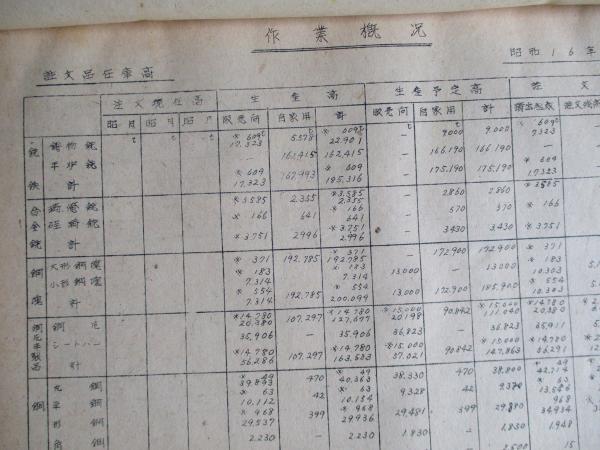 作業概況
昭和16年
註文品在庫高
註文現在高 生産高 生産予定高 註文
昭 月 昭 月 昭 月 販売向 自家用 計 販売向 自家用 計
t t t t t
銑鉄 鋳物銑 ※ 609 17.323 5.578 ※ 609 22.901 — 9.000 9.000 ※ 609 7323
平炉銑 — 162.415 162.415 — 166.190 166.190 —
計 ※ 609 17.323 167.993 ※ 609 185.316 — 175.190 175.190 ※ 609 17.323
合金銑 ※ 3.585 2.355 ※ 3.585 2.355 — 2860 2.860 ※ 3585
硅 銑 ※ 166 641 ※ 166 641 — 570 570 ※ 166
計 ※ 3.751 2996 ※ 3.751 2.996 — 3430 3.430 ※ 3.751
鋼塊 大形鋼塊 ※ 371 192.785 ※ 371 192.785 — 172.900 172.900 ※ 371
小形鋼塊 ※ 183 7.314 — ※ 183 7.314 13.000 — 13.000 ※ 183 10.303
計 ※ 554 7.314 192.785 ※ 554 200.099 13.000 172.900 185.900 ※ 554 10.303
鋼片 ※ 14.780 20.380 107.297 ※ 14.780 127.677 ※ 15.000 20.198 90.842 ※ 15.000 111.040 ※ 14.780 20.380
シートバー 35.906 — 35.906 36.823 — 36.823 35.911
計 ※ 14.780 56.286 107.297 ※ 14.780 163.583 ※ 15.000 57.021 90.842 ※ 15.000 147.863 ※ 14.780 56.291
鋼 丸鋼 ※ 49 39.893 470 ※ 49 40.363 38.330 470 38.800 49 42.714
平鋼 ※ 63 10.112 42 ※ 63 10.154 9328 42 9370 ※ 63
形鋼 ※ 968 29.537 399 ※ 968 29.936 29.481 399 29.880 968 34.934
角鋼 2.230 — 2.230 1.830 — 1.830 1.948
2.500 15